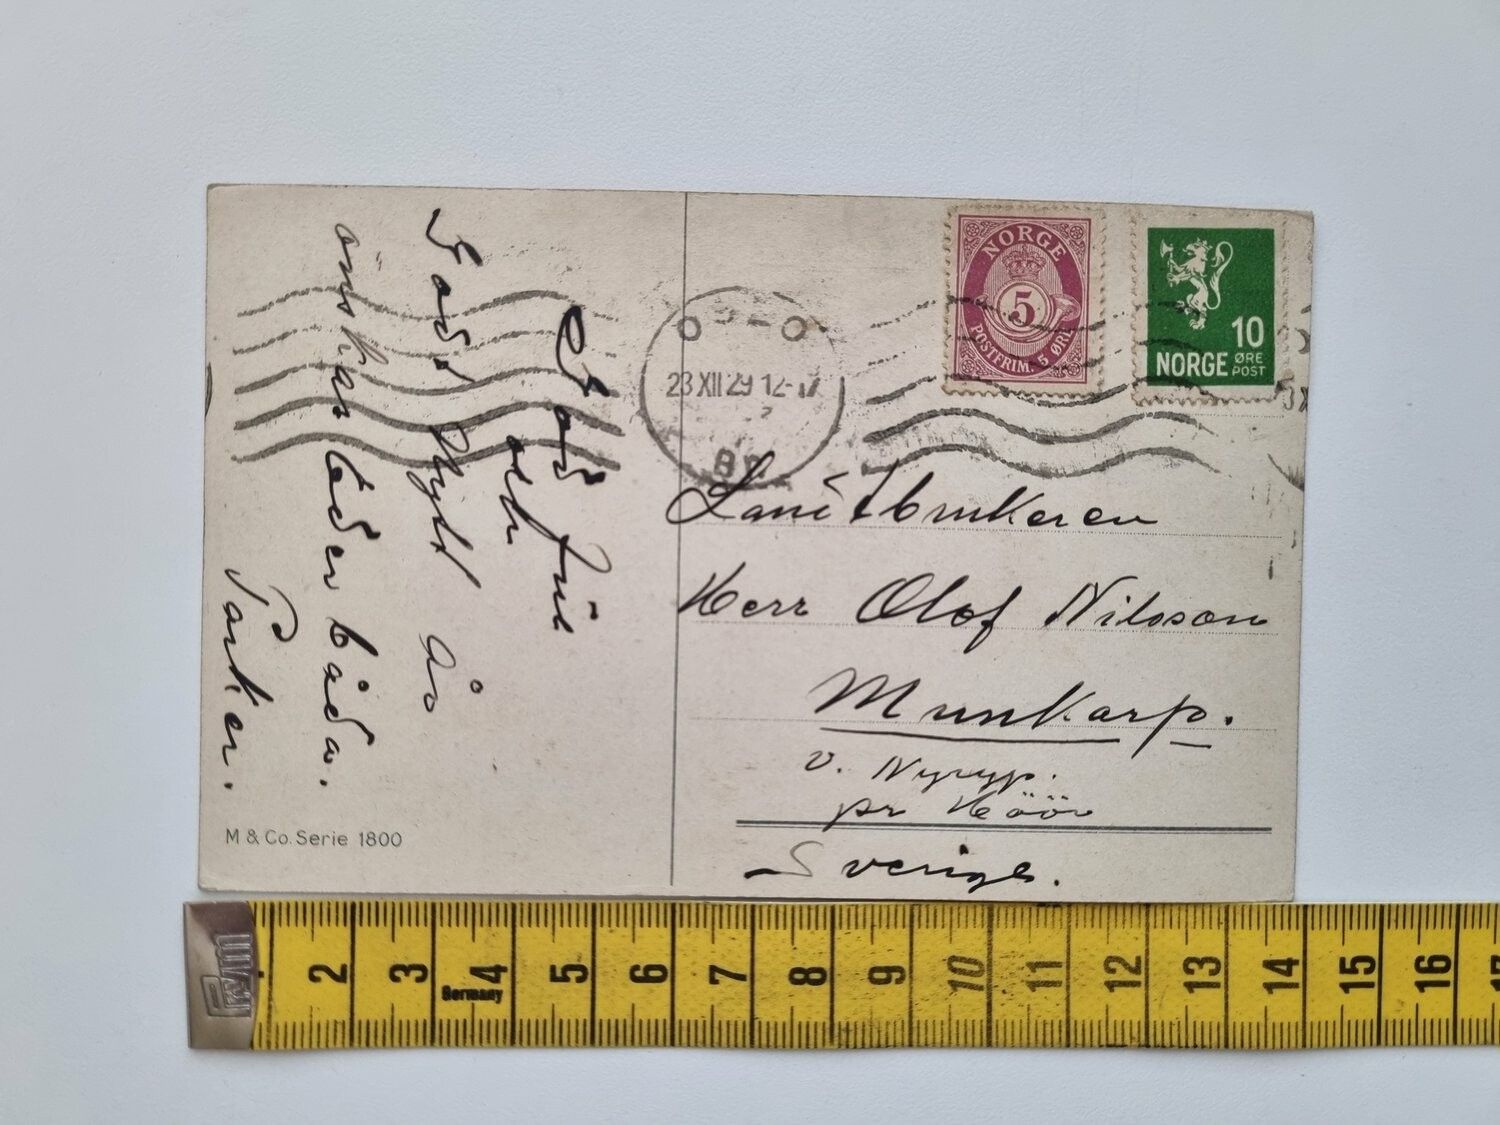 God Jul
och
Godt Nytt år
önskas Eder båda.
M & Co. Serie 1800
O O
23 XII 29 12-17
NORGE
5
POSTFRIM. 5 ØRE
10
NORGE ØRE
POST
Lantbrukeren
Herr Olof Nilsson
Munkarp.
v. Nyryp.
pr Höör
Sverige.
Prym
2 3 4 5 6 7 8 9 10 11 12 13 14 15 16 17
Germany